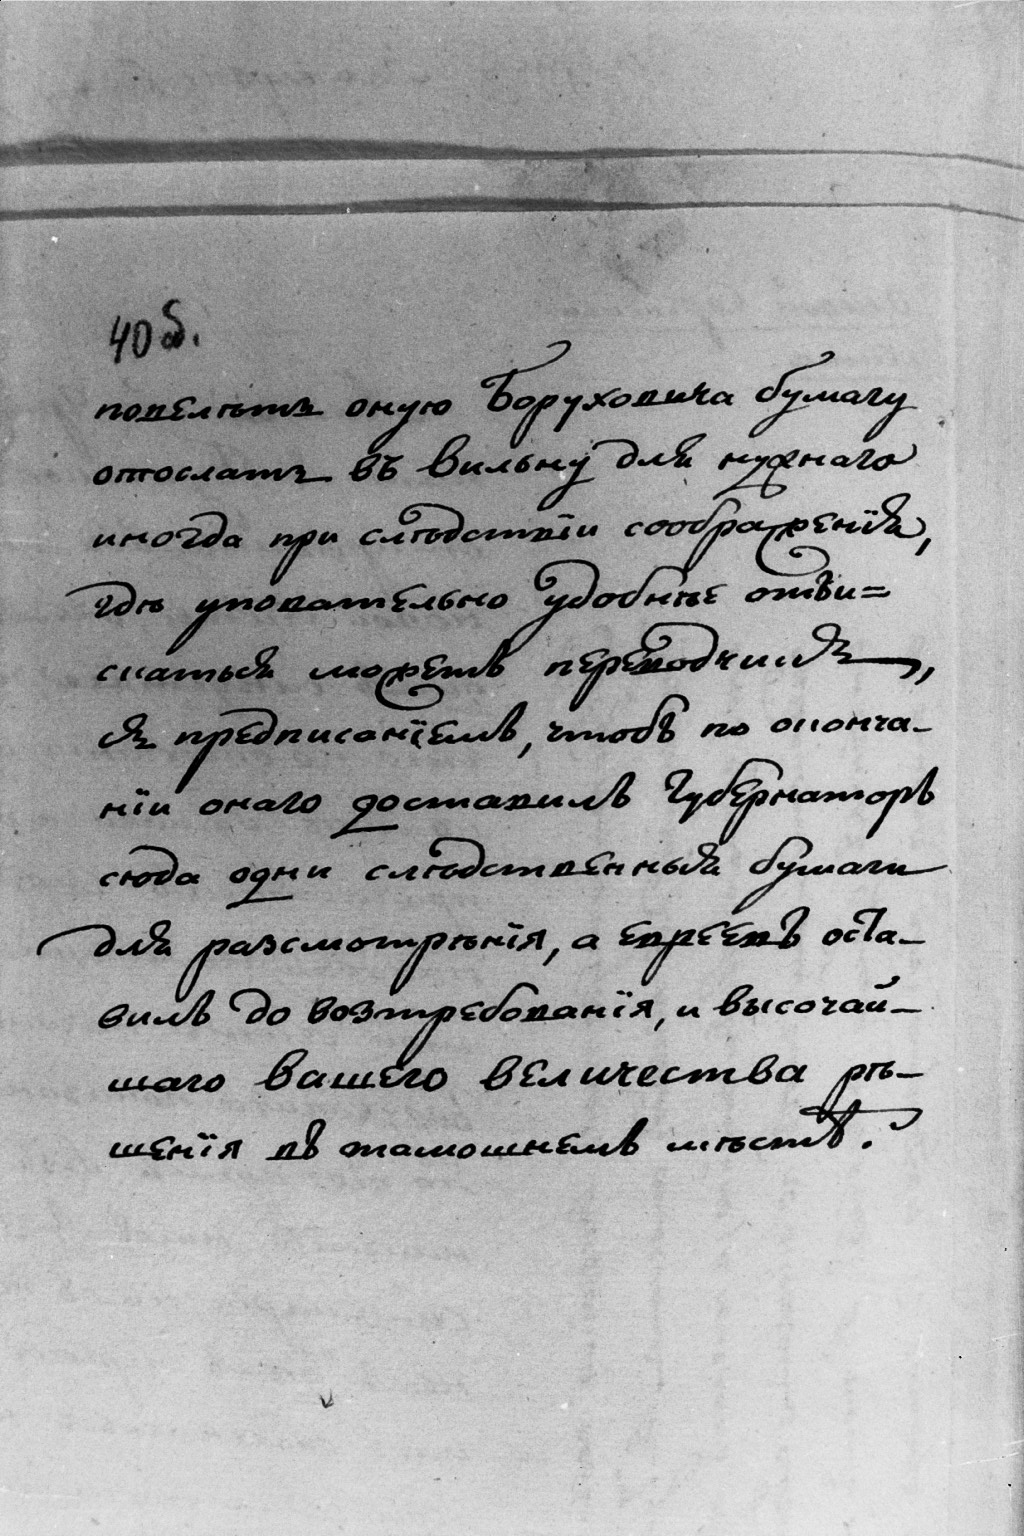 40 об.
повелѣть оную Боруховича бумагу
отослать въ Вильну для нужнаго
иногда при слѣдствіи соображенія,
гдѣ уповательно удобнѣе отъи=
скаться можетъ переводчикъ,
съ предписаніемъ, чтобъ по оконча-
ніи онаго доставилъ Губернаторъ
сюда одни слѣдственныя бумаги
для разсмотрѣнія, а евреевъ оста-
вилъ до возтребованія, и высочай-
шаго вашего величества рѣ-
шенія въ тамошнемъ мѣстѣ.